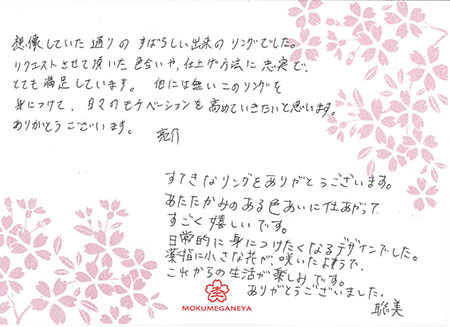 想像していた通りの すばらしい出来の リングでした。
リクエストさせて頂いた 色合いや、仕上げ方法に 忠実で、
とても 満足しています。 他には無い このリングを
身につけて、日々のモチベーションを 高めていきたいと思います。
ありがとうございます。 亮介
すてきなリングをありがとうございます。
あたたかみのある色あいに仕あがって
すごく嬉しいです。
日常的に身につけたくなるデザインでした。
薬指に小さな花が、咲いたようで、
これからの生活が楽しみです。
ありがとうございました。 聡美
MOKUMEGANEYA